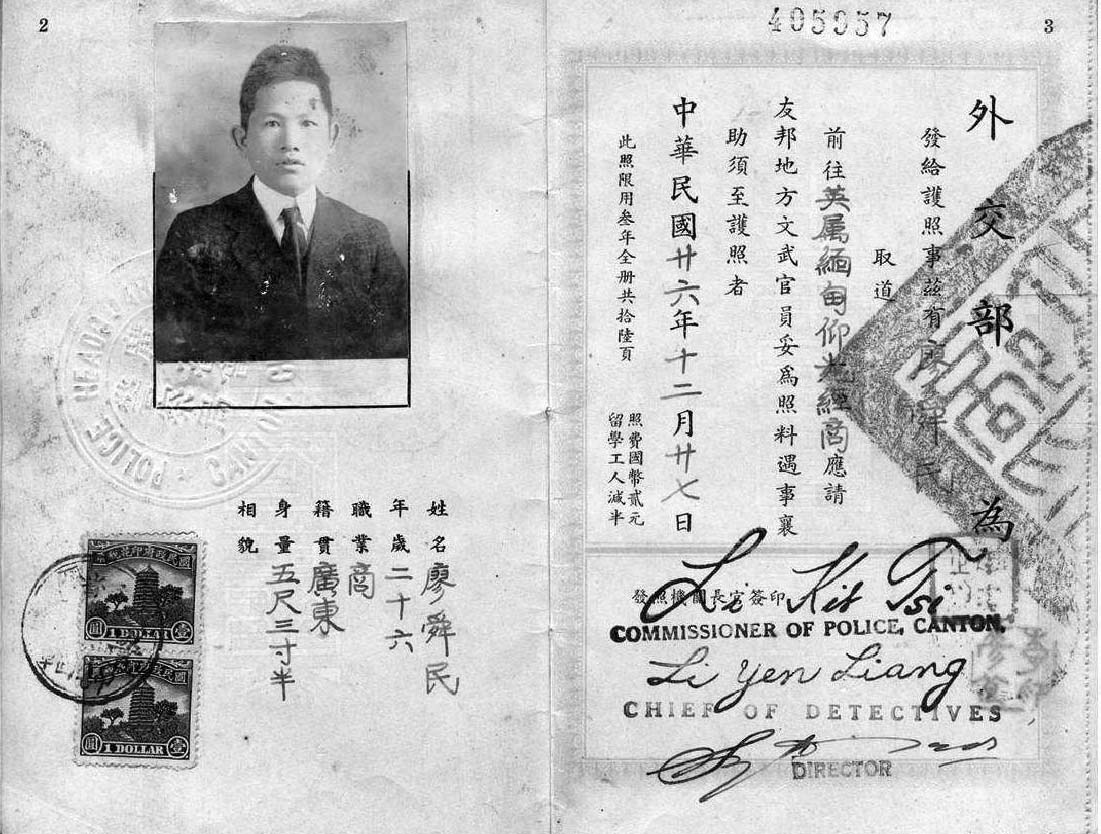 2
姓名廖舜民
年歲二十六
職業商
籍貫廣東
身量五尺三寸半
相貌
POLICE HEADQUARTERS CANTON
1 DOLLAR
1 DOLLAR
405957
3
外交部為
發給護照事茲有廖舜民
取道
前往英属緬甸仰光經商應請
友邦地方文武官員妥為照料遇事襄
助須至護照者
中華民國廿六年十二月廿七日
此照限用叁年全册共拾陸頁
照費國幣貳元
留學工人減半
發照機關長官簽印
Li Kit Tsi
COMMISSIONER OF POLICE, CANTON.
Li Yen Liang
CHIEF OF DETECTIVES
DIRECTOR